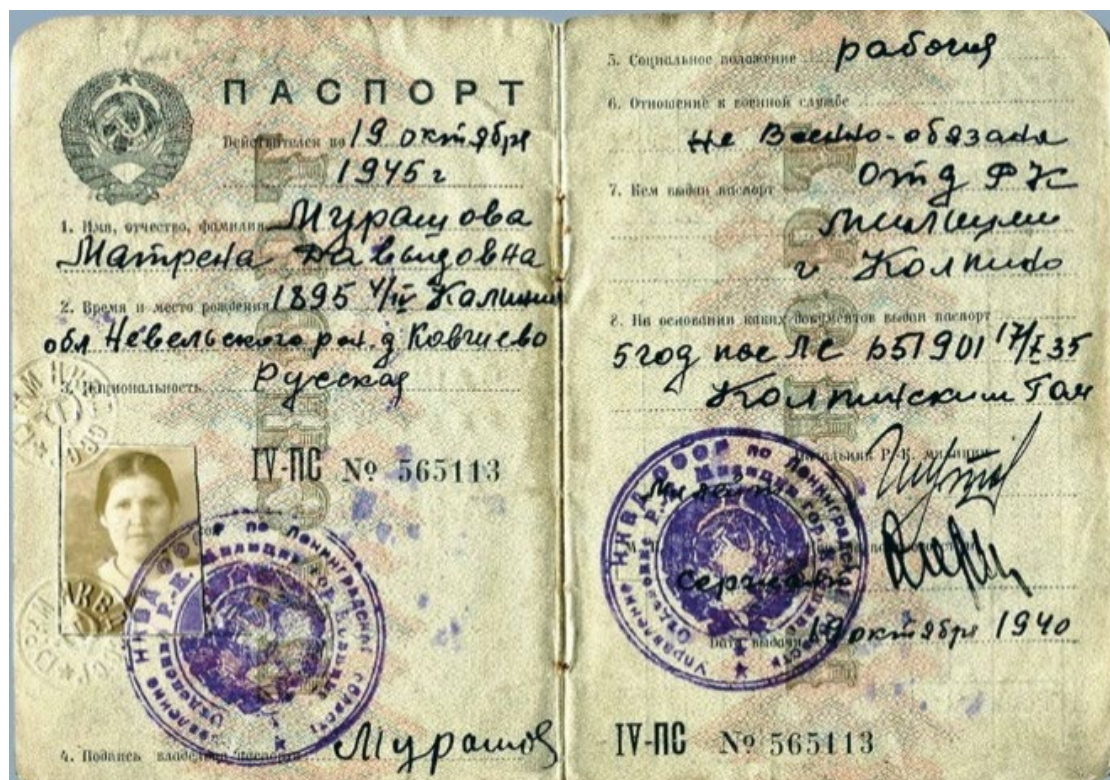 ПАСПОРТ
Действителен по 19 октября
1945 г
1. Имя, отчество, фамилия Мурашова
Матрена Давыдовна
2. Время и место рождения 1895 4/IV Калинин
обл Невельского р-н. д Ковчиево
3. Национальность Русская
IV-ПС № 565113
4. Подпись владельца паспорта Мурашов
5. Социальное положение рабочая
6. Отношение к военной службе
не Военно-обязана
7. Кем выдан паспорт Отд РК
Милиции
г Колпино
8. На основании каких документов выдан паспорт
5 год пос ЛС 551901 17/I 35
Колпинским Гом
Начальник Р.-К. милиции
Дата выдачи 19 октября 1940
IV-ПС № 565113